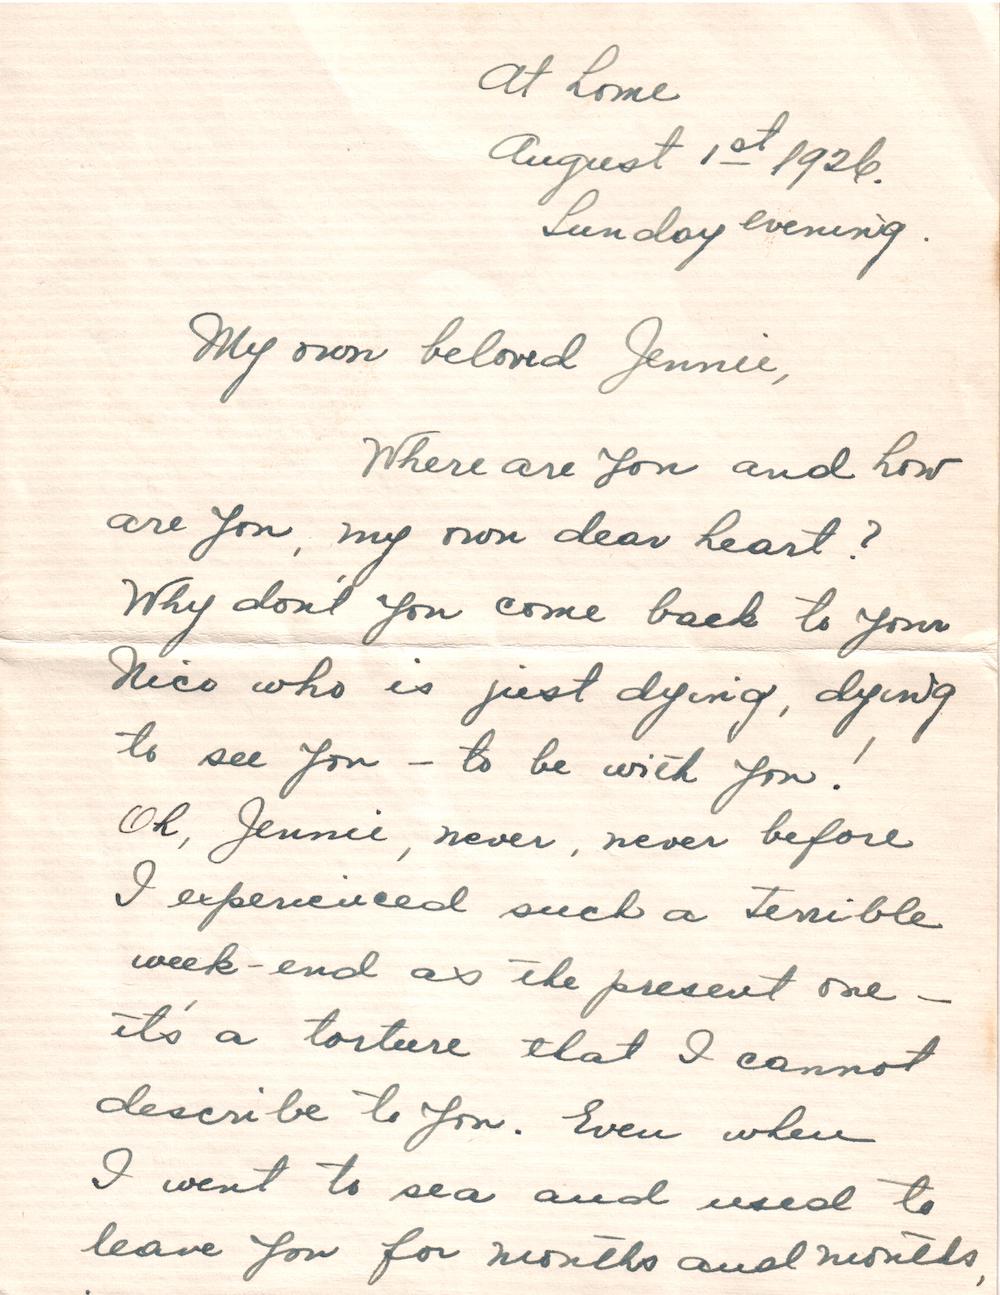 At home
August 1st 1926.
Sunday evening.
My own beloved Jennie,
Where are you and how
are you, my own dear heart?
Why don't you come back to your
Nico who is just dying, dying
to see you – to be with you!
Oh, Jennie, never, never before
I experienced such a terrible
week-end as the present one –
it's a torture that I cannot
describe to you. Even when
I went to sea and used to
leave you for months and months,